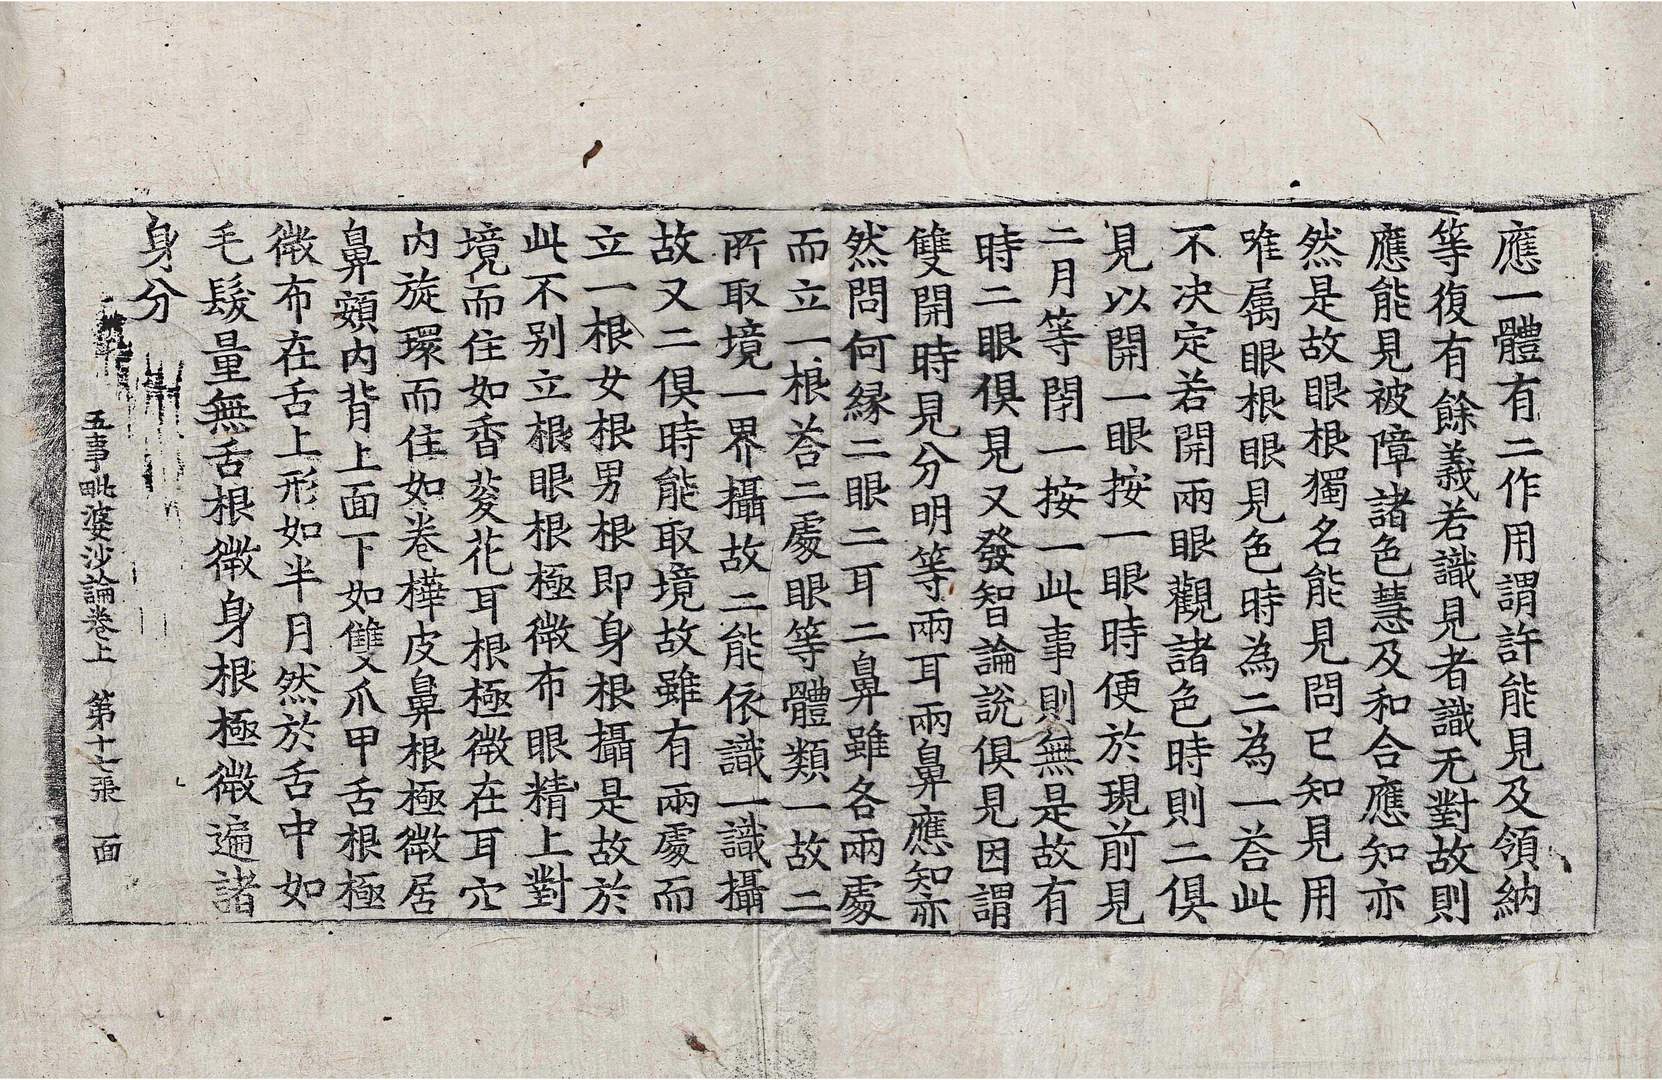 應一體有二作用謂許能見及領納
等復有餘義若識見者識无對故則
應能見被障諸色慧及和合應知亦
然是故眼根獨名能見問已知見用
唯屬眼根眼見色時為二為一荅此
不决定若開兩眼觀諸色時則二俱
見以開一眼按一眼時便於現前見
二月等閇一按一此事則無是故有
時二眼俱見又發智論說俱見因謂
雙開時見分明等兩耳兩鼻應知亦
然問何縁二眼二耳二鼻雖各兩處
而立一根荅二處眼等體類一故二
所取境一界攝故二能依識一識攝
故又二俱時能取境故雖有兩處而
立一根女根男根即身根攝是故於
此不别立根眼根極微布眼精上對
境而住如香荾花耳根極微在耳穴
内旋環而住如卷樺皮鼻根極微居
鼻頞内背上面下如雙爪甲舌根極
微布在舌上形如半月然於舌中如
毛髮量無舌根微身根極微遍諸
身分
五事毗婆沙論卷上 第十七張 面